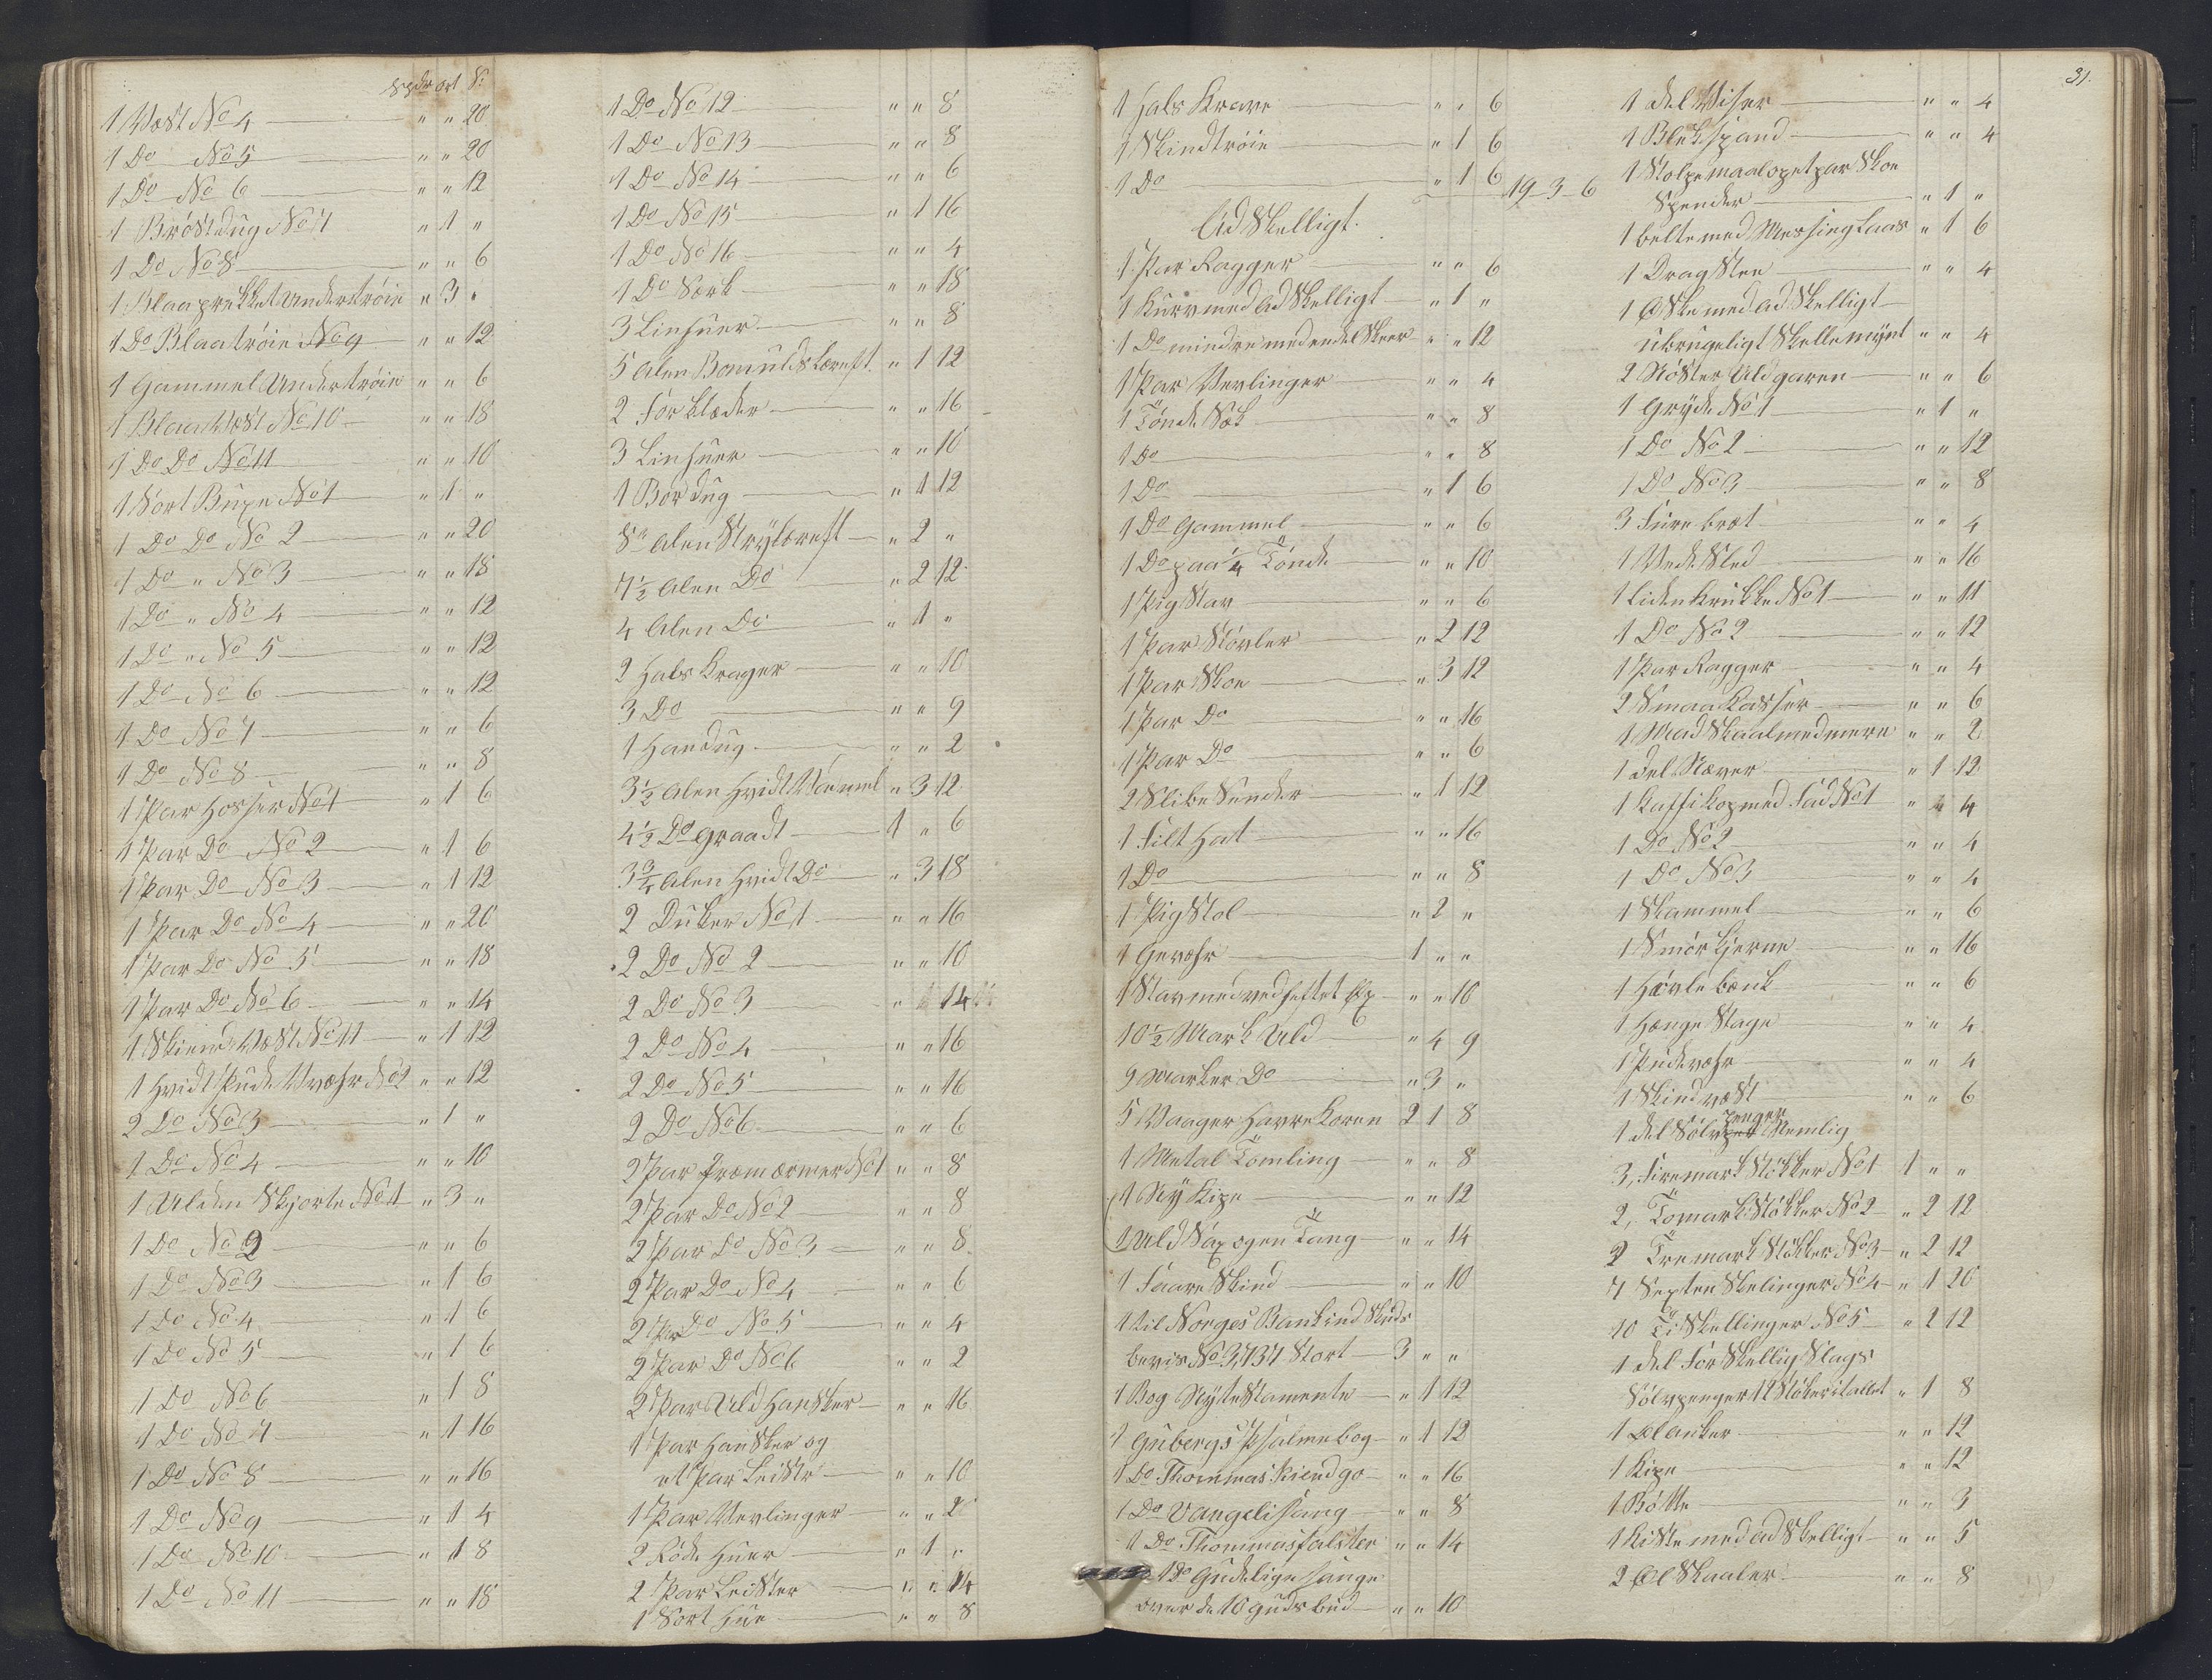 Spdr ort S:
1 Væst No 4 " " 20
1 Do No 5 " " 20
1 Do No 6 " " 12
1 Bröstdug No 7 " 1 "
1 Do No 8 " " 6
1 Blaaprikket Undertröie " 3 "
1 Do Blaatröie No 9 " " 12
1 Gammel Undertröie " " 6
1 Blaa Væst No 10 " " 18
1 Do Do No 11 " " 10
1 Sort Buxe No 1 " 1 "
1 Do Do No 2 " " 20
1 Do " No 3 " " 18
1 Do " No 4 " " 12
1 Do " No 5 " " 12
1 Do No 6 " " 12
1 Do No 7 " " 6
1 Do No 8 " " 8
1 Par Hosser No 1 " 1 6
1 Par Do No 2 " 1 6
1 Par Do No 3 " 1 12
1 Par Do No 4 " " 20
1 Par Do No 5 " " 18
1 Par Do No 6 " " 14
1 Skiend Væst No 11 " 1 12
1 Hvidt Pude Wæhr No 2 " " 12
2 Do No 3 " 1 "
1 Do No 4 " " 10
1 Ulden Skjorte No 1 " 3 "
1 Do No 2 " " 6
1 Do No 3 " 1 6
1 Do No 4 " 1 6
1 Do No 5 " 1 6
1 Do No 6 " 1 8
1 Do No 7 " 1 16
1 Do No 8 " " 16
1 Do No 9 " 1 4
1 Do No 10 " 1 8
1 Do No 11 " " 18
1 Do No 12 " " 8
1 Do No 13 " " 8
1 Do No 14 " " 6
1 Do No 15 " 1 16
1 Do No 16 " " 4
1 Do Særk " " 18
3 Linhuer " " 8
5 Alen Bomuldslæreft " 1 12
2 Forklæder " " 16
3 Linhuer " " 10
1 Bordug " 1 12
8 Alen Strylæreft " 2 "
7 1/2 Alen Do " 2 12
4 Alen Do " 1 "
2 Hals Krager " " 10
3 Do " " 9
1 Handug " " 2
3 1/2 Alen Hvidt Vammel " 3 12
4 1/2 Do Graadt 1 " 6
3 3/4 Alen Hvidt Do " 3 18
2 Duker No 1 " " 16
2 Do No 2 " " 10
2 Do No 3 " 14
2 Do No 4 " " 16
2 Do No 5 " " 16
2 Do No 6 " " 6
2 Par Fræmærmer No 1 " " 8
2 Par Do No 2 " " 8
2 Par Do No 3 " " 8
2 Par Do No 4 " " 6
2 Par Do No 5 " " 4
2 Par Do No 6 " " 2
2 Par Uld Hansker " " 16
1 Par Hansker og
et Par Leiste " " 10
1 Par Vevlinger " " 2
2 Röde Huer " 1 "
2 Par Leister " " 14
1 Sort Hue " " 8
31.
1 Hals Krave " " 6
1 Skindtröie " 1 6
1 Do " 1 6 19-3-6
Ad Skelligt.
1 Par Ragger " " 6
1 Kurv med Adskelligt " 1 "
1 Do mindre med endel Skeer " " 12
1 Par Vevlinger " " 4
1 Tönde Sæk " " 8
1 Do " " 8
1 Do " 1 6
1 Do Gammel " " 6
1 Do paa 1/4 Tönde " " 10
1 Pig Stav " " 6
1 Par Stövler " 2 12
1 Par Skoe " 3 12
1 Par Do " " 16
1 Par Do " " 6
2 Slibe Stender " 1 12
1 Filt Hat " " 16
1 Do " " 8
1 Pig Stol " 2 "
1 Gevæhr 1 " "
1 Stav med vedheftet Öx " " 10
10 1/2 Mark Uld " 4 9
9 Marker Do " 3 "
5 Vaager Havre Koren 2 1 8
1 Metal Tömling " " 8
1 Ny Kipe " " 12
1 Uld Sax og en Tang " " 14
1 Faare Skind " " 10
1 til Norges Bank ind Skuds
bevis No 3,737 Stort 3 " "
1 Bog Nytestamente " 1 12
1 Gubergs Psalmebog " 1 12
1 Do Thommas Kiendgo " " 16
1 Do Vangelisang " " 8
1 Do Thommasfalster " " 14
1 Do Gudelige sange
over de 10 Guds bud " " 10
1 del Viser " " 4
1 Blekspand " " 4
1 Stolpemaal og et par Skoe
Spender " 1 "
1 belte med Messinglaas " 1 6
1 Drag Sten " " 4
1 Eske med Adskelligt
ubrugeligt Skellemynt " " 4
2 Nöster Uldgaren " " 6
1 Gryde No 1 " 1 "
1 Do No 2 " " 12
1 Do No 3 " " 8
3 Fure bræt " " 4
1 Vede Sled " " 16
1 liden Krukke No 1 " " 11
1 Do No 2 " " 12
1 Par Ragger " " 4
2 Smaa Kasser " " 6
1 Mad Skaal med mere " " 2
1 del Næver " 1 12
1 Kaffi Kop med Fad No 1 " " 4
1 Do No 2 " " 4
1 Do No 3 " " 4
1 Skammel " " 6
1 Smör Kjerne " " 16
1 Hövle bænk " " 6
1 Hænge Stage " " 4
1 Pudevæhr " " 4
1 Skind væst " " 6
1 del Sölvpenger Nemlig
3, Firemark Stökker No 1 1 " "
2, Tomark Stökker No 2 " 2 12
2 Tremark Stökker No 3 " 2 12
7 Sexten Skelinger No 4 " 1 20
10 Ti Skellinger No 5 " 2 12
1 del For Skellig Slags
Sölvpenger 12 Stöker i tallet " 1 8
1 Ølanker " " 12
1 Kipe " " 12
1 Bötte " " 3
1 Kiste med adSkelligt " " 5
2 Øl Skaaler " " 8